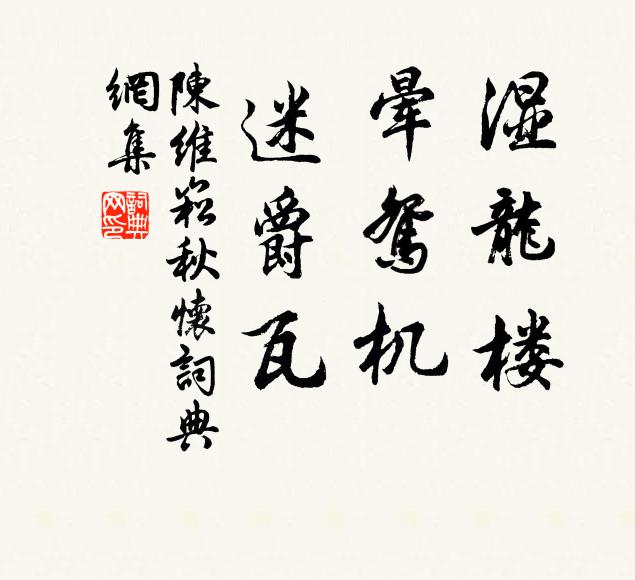 湿龍楼
暈鴛机
迷爵瓦
陳維崧秋懷詞典
網集
詞典
网印